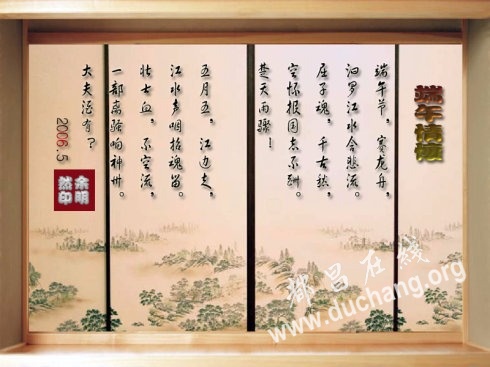 端午情
端午节，赛龙舟，
汨罗江水含悲流。
屈子魂，千古愁，
空怀报国志不酬，
楚天雨骤！
五月五，江边走，
江水声咽招魂留。
壮士血，不空流，
一部离骚响神州。
大夫有？
2006.5
余明
然印
都昌在线
www.duchang.org